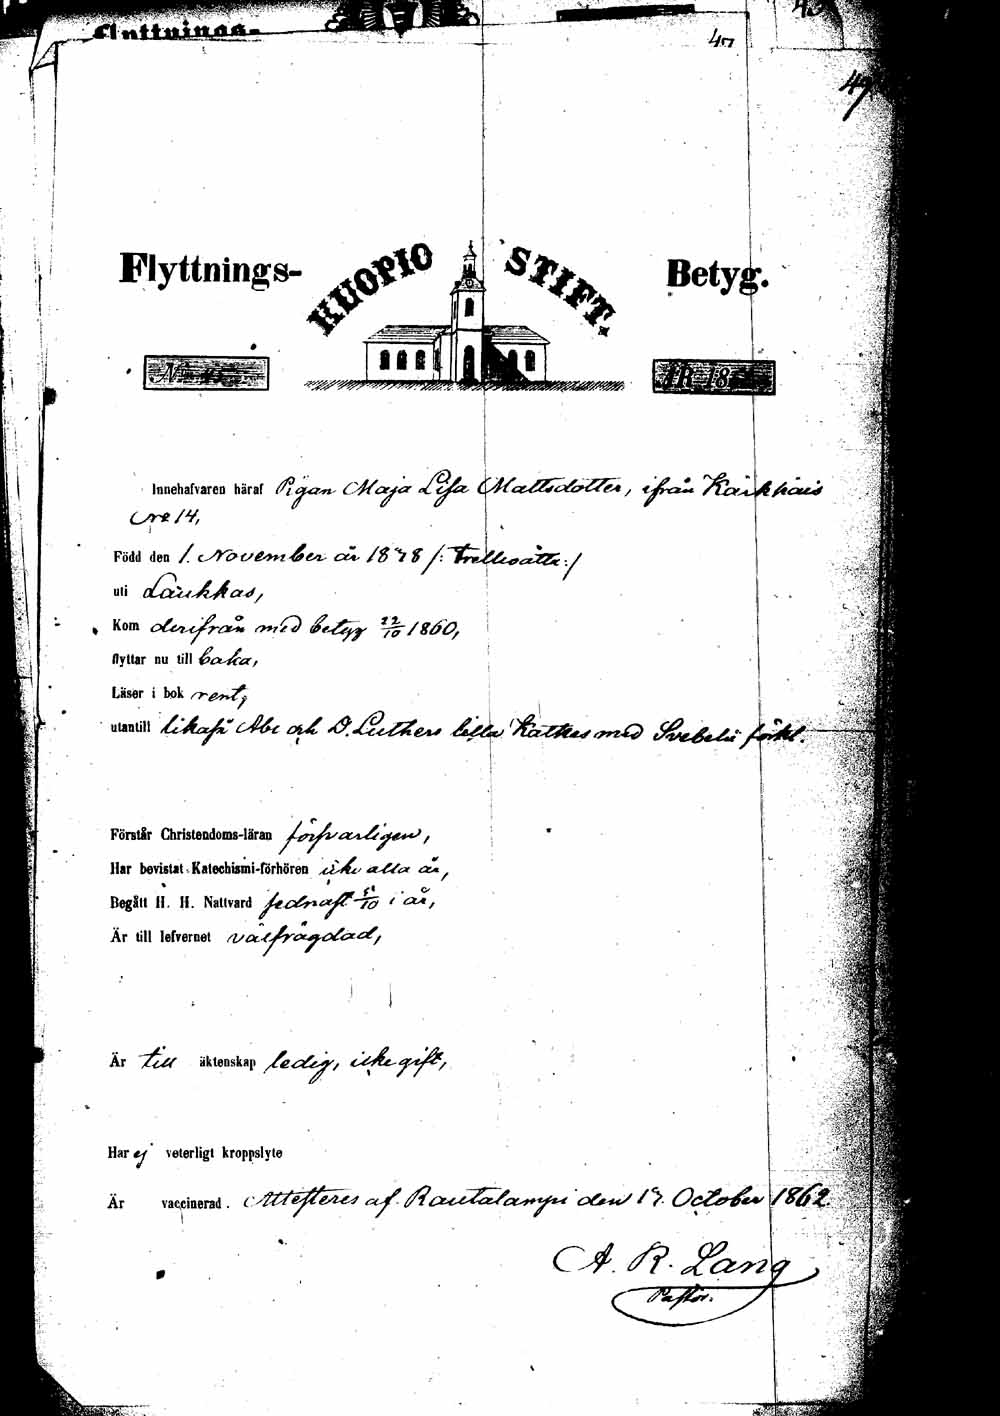 Flyttnings-
47
Flyttnings- KUOPIO STIFT. Betyg.
N ÅR 18
Innehafvaren häraf Pigan Maja Lisa Mattsdotter, ifrån Kärkkäis
No 14,
Född den 1. November år 1848
uti Laukkas,
Kom derifrån med betyg 22/10 1860,
flyttar nu till baka,
Läser i bok rent,
utantill likaså Abc och D. Luthers lilla Kattkes med Svebelii förkl.
Förstår Christendoms-läran försvarligen,
Har bevistat Katechismi-förhören icke alla år,
Begått H. H. Nattvard sednast 5/10 i år,
Är till lefvernet välfrägdad,
Är till äktenskap ledig, icke gift,
Har ej veterligt kroppslyte
Är vaccinerad. Attesteres af Rautalampi den 17. October 1862.
A. R. Lang
Pastor.